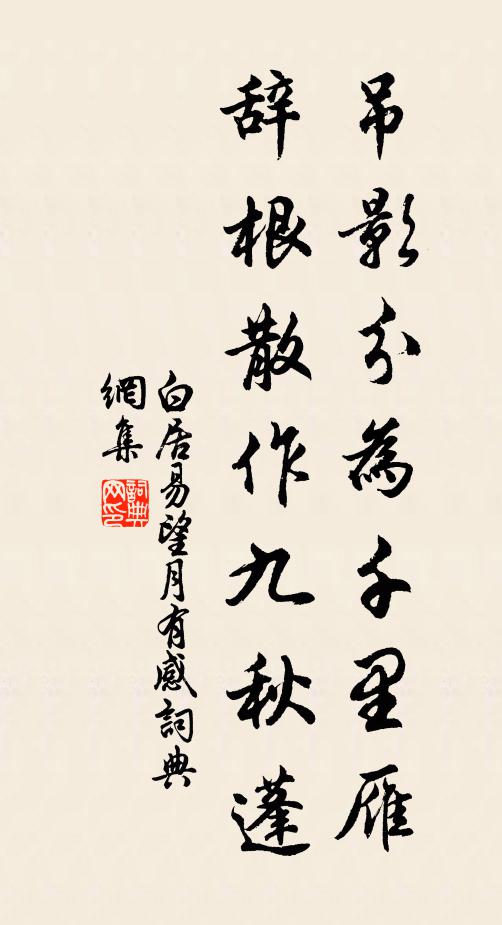 吊影分為千里雁
辞根散作九秋蓬
白居易望月有感詞典
網集
詞典
网印